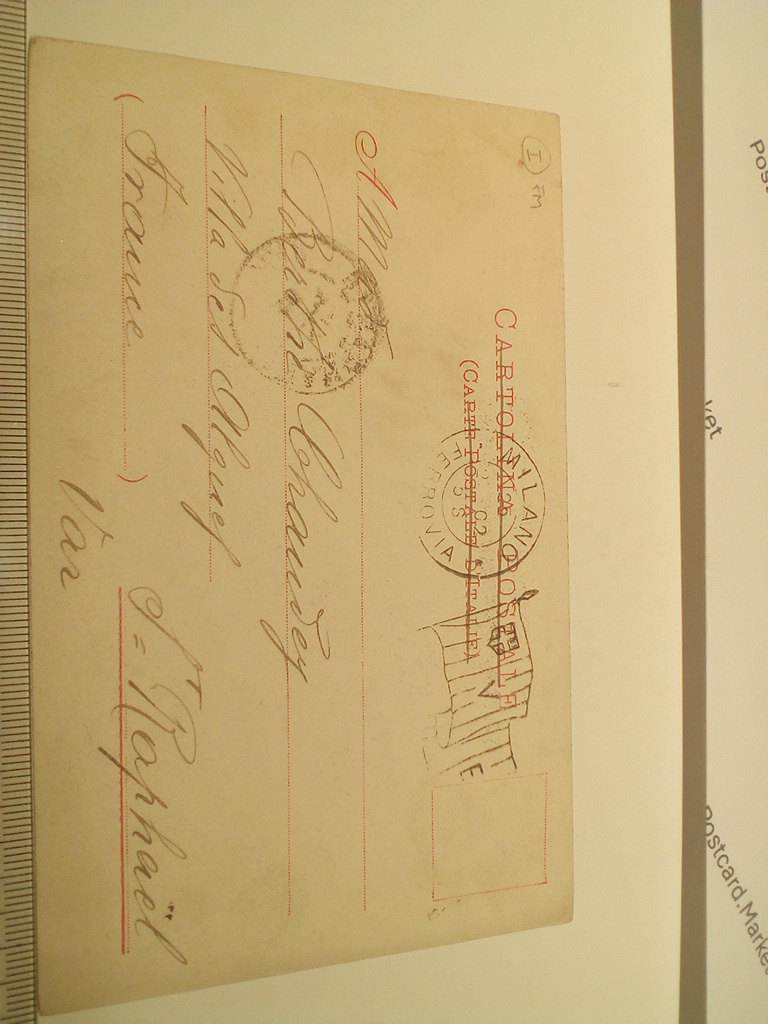 CARTOLINA POSTALE
(CARTE POSTALE D'ITALIE)
MILANO
FERROVIA
I
FM
V E
A M
Berthe Chandey
Villa des Algues
St = Raphaël
(France)
Var
Post
ket
Postcard.Market